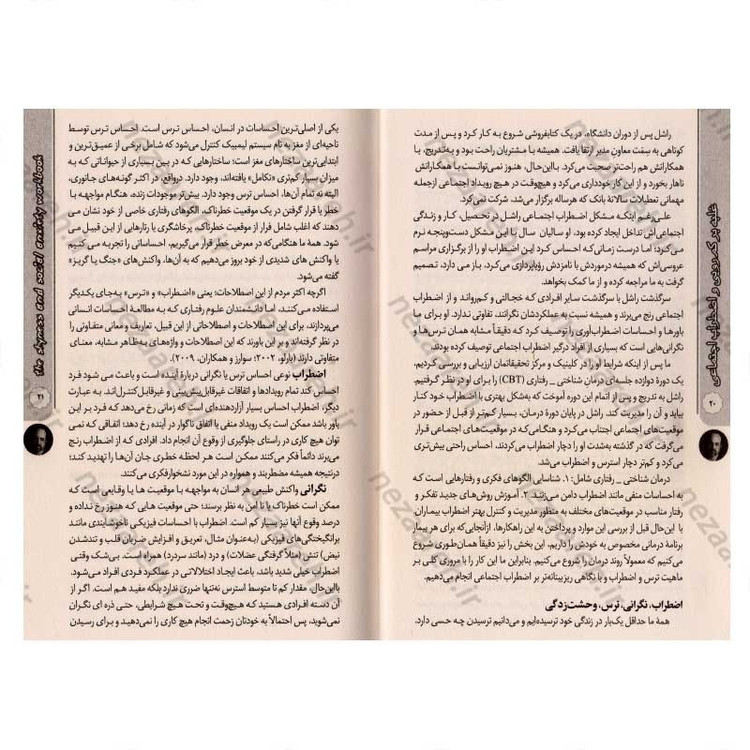 راشل پس از دوران دانشگاه، در یک کتابفروشی شروع به کار کرد و پس از مدت
کوتاهی به سِمَت معاون مدیر ارتقا یافت. همیشه با مشتریان راحت بود و به‌تدریج، با
همکارانش هم راحت‌تر صحبت می‌کرد. بااین‌حال، هنوز نمی‌توانست با همکارانش
ناهار بخورد و از این کار خودداری می‌کرد و هیچ‌وقت در هیچ رویداد اجتماعی ازجمله
مهمانی تعطیلات سالانهٔ بانک که هرساله برگزار می‌شد، شرکت نمی‌کرد.
علی‌رغم اینکه مشکل اضطراب اجتماعی راشل در تحصیل، کار و زندگی
اجتماعی‌اش تداخل ایجاد کرده بود، او سالیان سال با این مشکل دست‌وپنجه نرم
می‌کرد؛ اما درست زمانی‌که احساس کرد این اضطراب او را از برگزاری مراسم
عروسی‌اش که همیشه درموردش با نامزدش رؤیاپردازی می‌کرد، باز می‌دارد، تصمیم
گرفت به ما مراجعه کرده و از ما کمک بخواهد.
سرگذشت راشل با سرگذشت سایر افرادی که خجالتی و کم‌رواند و از اضطراب
اجتماعی رنج می‌برند و همیشه نسبت به عملکردشان نگرانند، تفاوتی ندارد. او برای ما
باورها و احساسات اضطراب‌آوری را توصیف کرد که دقیقاً مشابه همان ترس‌ها و
نگرانی‌هایی است که بسیاری از افراد درگیر اضطراب اجتماعی توصیف کرده بودند.
ما پس از اینکه شرایط او را در کلینیک و مرکز تحقیقاتمان ارزیابی و بررسی کردیم،
یک دورهٔ دوازده جلسه‌ای درمان شناختی ـ رفتاری (CBT) را برای او در نظر گرفتیم.
راشل به تدریج و پس از اتمام این دوره آموخت که به‌شکل بهتری با اضطراب خود کنار
بیاید و آن را مدیریت کند. راشل در پایان دورهٔ درمان، بسیار کم‌تر از قبل از حضور در
موقعیت‌های اجتماعی اجتناب می‌کرد و هنگامی‌که در موقعیت‌های اجتماعی قرار
می‌گرفت که در گذشته به‌شدت او را دچار اضطراب می‌کردند، احساس راحتی بیش‌تری
می‌کرد و کم‌تر دچار استرس و اضطراب می‌شد.
درمان شناختی ـ رفتاری شامل: ۱. شناسایی الگوهای فکری و رفتارهایی است که
به احساسات منفی مانند اضطراب دامن می‌زنند. ۲. آموزش روش‌های جدید تفکر و
رفتار مناسب در موقعیت‌های مختلف به منظور مدیریت و کنترل بهتر اضطراب بیماران
با این‌حال قبل از بررسی این موارد و پرداختن به این راهکارها، ازآنجایی‌که برای هر بیمار
برنامهٔ درمانی مخصوص به خودش را داریم، این بخش را نیز دقیقاً همان‌طوری شروع
می‌کنیم که معمولاً روند درمان را شروع می‌کنیم. بنابراین ما این کار را با مروری کلی بر
ماهیت ترس و اضطراب و با نگاهی ریزبینانه‌تر بر اضطراب اجتماعی انجام می‌دهیم.
اضطراب، نگرانی، ترس، وحشت‌زدگی
همهٔ ما حداقل یک‌بار در زندگی خود ترسیده‌ایم و می‌دانیم ترسیدن چه حسی دارد.
غلبه بر کم‌رویی و اضطراب اجتماعی
۲۰
یکی از اصلی‌ترین احساسات در انسان، احساس ترس است. احساس ترس توسط
ناحیه‌ای از مغز به نام سیستم لیمبیک کنترل می‌شود که شامل برخی از عمیق‌ترین و
ابتدایی‌ترین ساختارهای مغز است؛ ساختارهایی که در بین بسیاری از حیواناتی که به
میزان بسیار کم‌تری «تکامل» یافته‌اند، وجود دارد. درواقع، در اکثر گونه‌های جانوری،
البته نه تمام آن‌ها، احساس ترس وجود دارد. بیش‌تر موجودات زنده، هنگام مواجهه با
خطر یا قرار گرفتن در یک موقعیت خطرناک، الگوهای رفتاری خاصی از خود نشان می
دهند که اغلب شامل فرار از موقعیت خطرناک، پرخاشگری یا رفتارهایی از این قبیل می
شود. همهٔ ما هنگامی‌که در معرض خطر قرار می‌گیریم، احساساتی را تجربه می کنیم
یا واکنش های شدیدی از خود بروز می‌دهیم که به آن‌ها، واکنش‌های «جنگ یا گریز»
گفته می‌شود.
اگرچه اکثر مردم از این اصطلاحات؛ یعنی «اضطراب» و «ترس» به‌جای یکدیگر
استفاده می‌کنند، اما دانشمندان علوم رفتاری که به مطالعهٔ احساسات انسانی
می‌پردازند، برای این اصطلاحات و اصطلاحاتی از این قبیل، تعاریف و معانی متفاوتی را
در نظر گرفته‌اند و بر این باورند که این اصطلاحات و واژه‌های به‌ظاهر مشابه، معنای
متفاوتی دارند (بارلو، ۲۰۰۲؛ سوارز و همکاران، ۲۰۰۹).
اضطراب نوعی احساس ترس یا نگرانی دربارهٔ آینده است و باعث می شود فرد
احساس کند تمام رویدادها و اتفاقات غیرقابل‌پیش‌بینی و غیرقابل‌کنترل‌اند. به عبارت
دیگر، اضطراب احساس بسیار آزاردهنده‌ای است که زمانی رخ می‌دهد که فرد بر این
باور باشد ممکن است یک رویداد منفی یا اتفاق ناگوار در آینده رخ دهد؛ اتفاقی که نمی
توان هیچ کاری در راستای جلوگیری از وقوع آن انجام داد. افرادی که از اضطراب رنج
می‌برند دائماً فکر می‌کنند ممکن است هر لحظه خطری جان آن‌ها را تهدید کند؛
درنتیجه همیشه مضطربند و همواره در این مورد نشخوارفکری می‌کنند.
نگرانی واکنش طبیعی هر انسان به مواجهه با موقعیت ها یا وقایعی است که
ممکن است خطرناک یا نا امن به نظر برسند؛ حتی موقعیت هایی که هنوز رخ نداده و
درصد وقوع آنها نیز بسیار کم است. اضطراب با احساسات فیزیکی ناخوشایندی مانند
برانگیختگی‌های فیزیکی (به‌عنوان مثال، تعریق و افزایش ضربان قلب و تندشدن
نبض) تنش (مثلاً گرفتگی عضلات) و درد (مانند سردرد) همراه است. بی‌شک وقتی
اضطراب خیلی شدید باشد، باعث ایجاد اختلالاتی در عملکرد فردی افراد می‌شود.
بااین‌حال، مقدار کم تا متوسط استرس نه‌تنها ضرری ندارد بلکه مفید هم است. اگر از
آن دسته افرادی هستید که هیچ‌وقت و تحت هیچ شرایطی، حتی ذره ای نگران
نمی‌شوید، پس احتمالاً به خودتان زحمت انجام هیچ کاری را نمی‌دهید و برای رسیدن
the shyness and social anxiety workbook
۲۱
nezaneh.ir